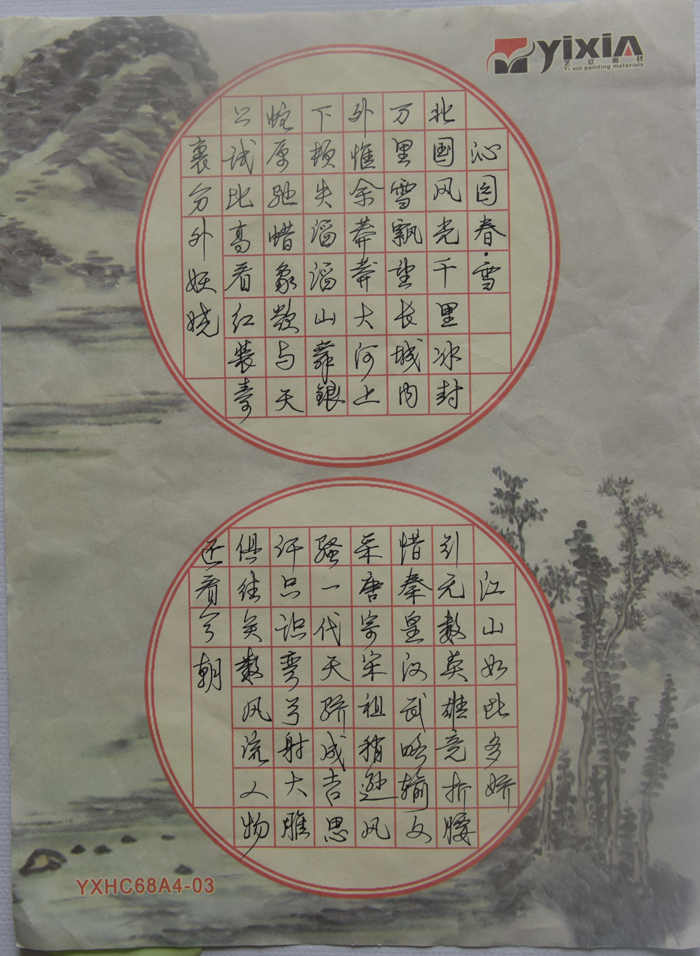 yixiA
沁园春·雪
北国风光千里冰封
万里雪飘望长城内
外惟余莽莽大河上
下顿失滔滔山舞銀
蛇原驰蜡象欲与天
公试比高看红装素
裹分外妖娆
江山如此多娇
引无数英雄竞折腰
惜秦皇汉武略输文
采唐宗宋祖稍逊风
骚一代天骄成吉思
汗只识弯弓射大雕
俱往矣数风流人物
还看今朝
YXHC68A4-03